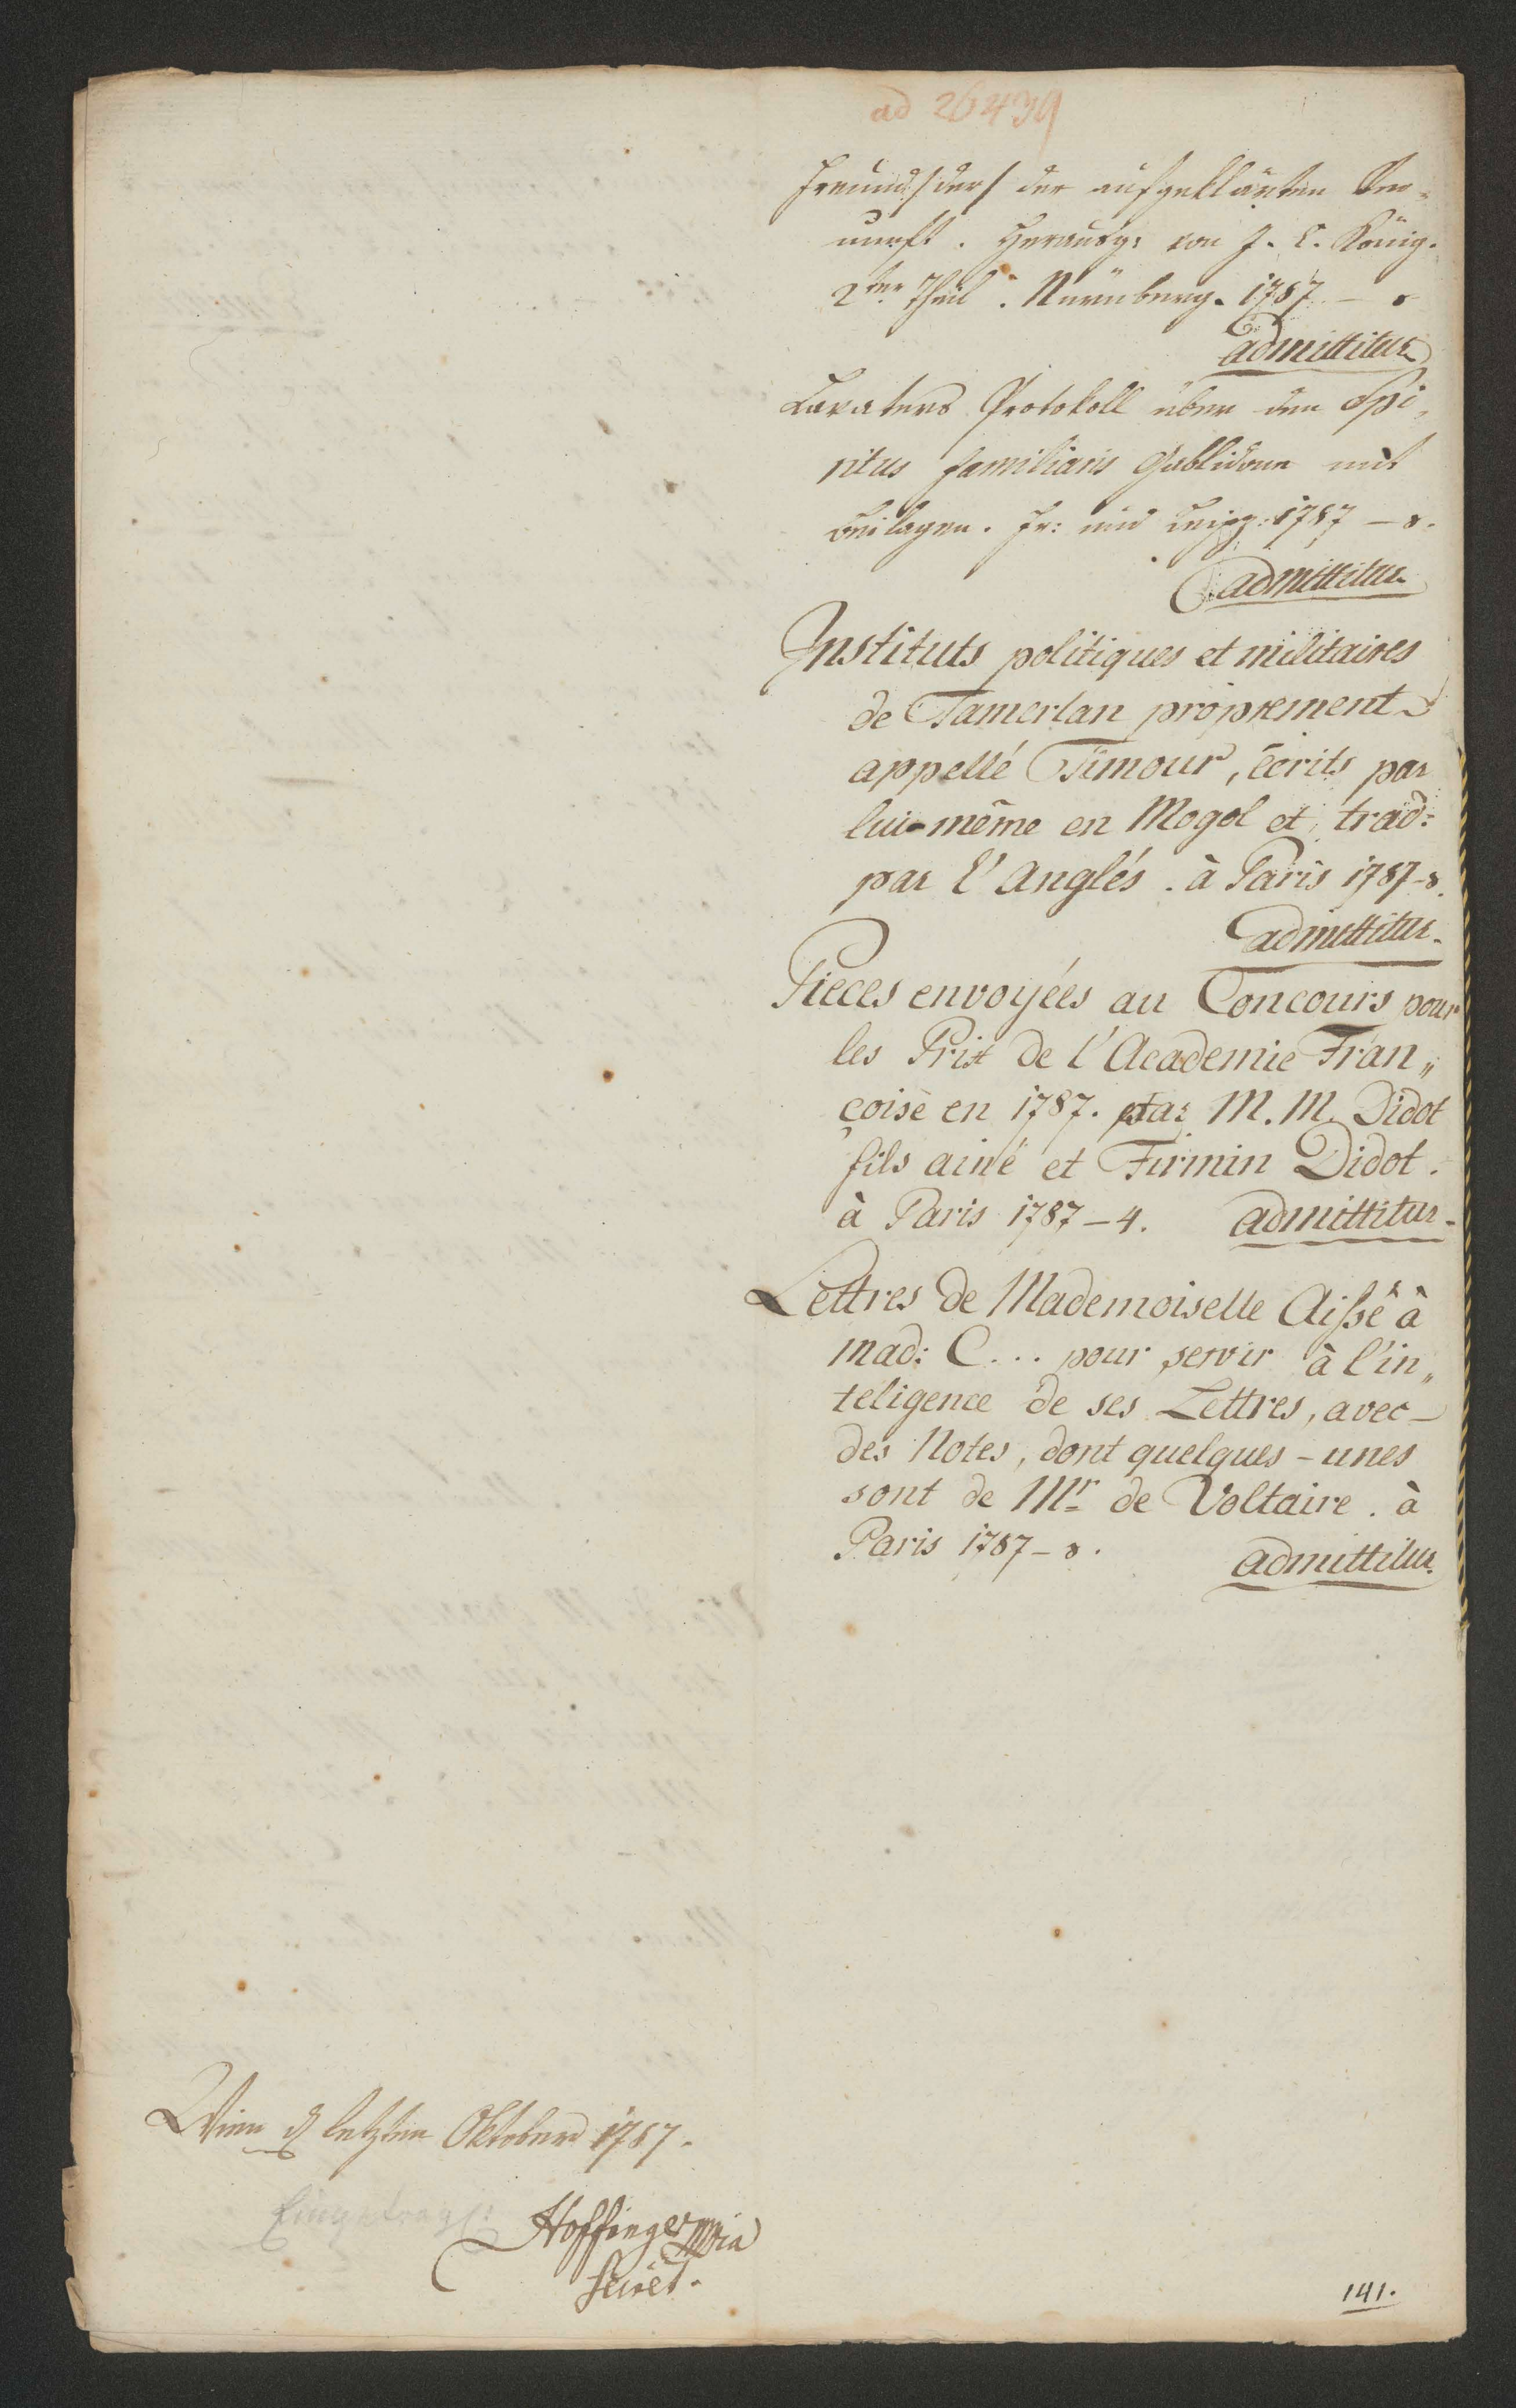 ad 26439
Freund /:der:/ der aufgeklärten Ver-
nunft. Herausg: von J. C. König.
2ter Theil. Nürnberg. 1787 – 8
admittitur
Lavaters Protokoll über den Spi-
ritus familiaris Gablidone mit
Beilagen. Fr: und Leipz: 1787 – 8.
admittitur
Instituts politiques et militaires
de Tamerlan proprement
appellé Timour, écrits par
lui-même en Mogol et trad:
par l'Anglés. à Paris 1787-8.
admittitur.
Pieces envoyées au Concours pour
les Prix de l'Academie Fran„
çoise en 1787. par M. M. Didot
fils ainé et Firmin Didot.
à Paris 1787 – 4. admittitur.
Lettres de Mademoiselle Aißé à
mad: C... pour servir à l'in„
teligence de ses Lettres, avec
des Notes, dont quelques-unes
sont de Mr de Voltaire. à
Paris 1787 – 8. admittitur.
Wien d letzten Oktobers 1787.
Eingetragen
Hoffinger mpia
Secret.
141.